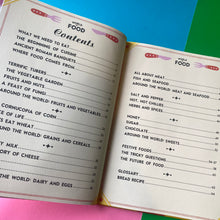 FOOD
Contents
WHAT WE NEED TO EAT
THE BEGINNING OF COOKING
ANCIENT ROMAN BANQUETS
WHERE FOOD COMES FROM
TERRIFIC TUBERS
THE VEGETABLE GARDEN
FRUITS AND NUTS
A FEAST OF FUNGI
AROUND THE WORLD: FRUITS AND VEGETABLES
CORNUCOPIA OF CORN
OF LIFE
EAT WHEAT
AROUND THE WORLD: GRAINS AND CEREALS
MILK
STORY OF CHEESE
THE WORLD: DAIRY AND EGGS
FOOD
ALL ABOUT MEAT
FISH AND SEAFOOD
AROUND THE WORLD: MEAT AND SEAFOOD
SALT AND PEPPER
HOT, HOT CHILIES
HERBS AND SPICES
HONEY
SUGAR
CHOCOLATE
AROUND THE WORLD: SWEETS
FESTIVE FOODS
THE TRICKY QUESTIONS
THE FUTURE OF FOOD
GLOSSARY
BREAD RECIPE